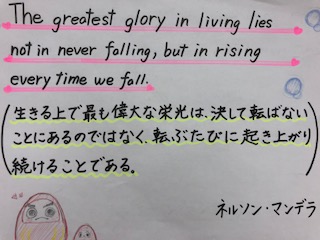 The greatest glory in living lies
not in never falling, but in rising
every time we fall.
(生きる上で最も偉大な栄光は、決して転ばない
ことにあるのではなく、転ぶたびに起き上がり
続けることである。)
ネルソン・マンデラ